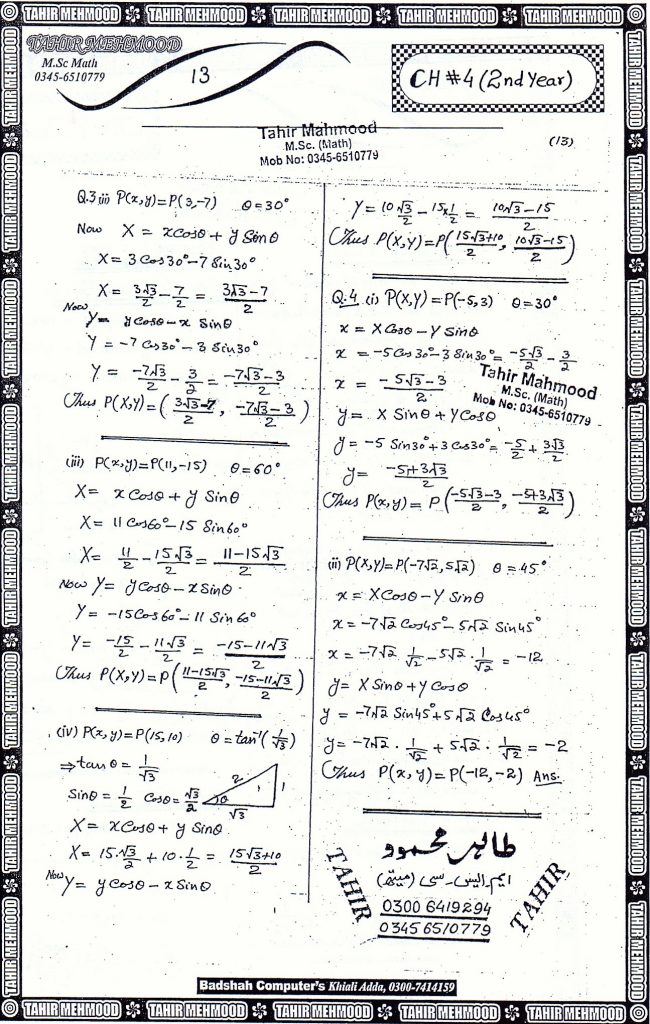 TAHIR MEHMOOD TAHIR MEHMOOD TAHIR MEHMOOD TAHIR MEHMOOD TAHIR MEHMOOD
TAHIR MEHMOOD
M.Sc Math
0345-6510779
13
CH #4 (2nd Year)
Tahir Mahmood
M.Sc. (Math)
Mob No: 0345-6510779
(13)
Q.3 (ii) P(x,y)=P(3,-7) θ=30°
Now X = xCosθ + y Sinθ
X= 3 Cos30°-7 Sin30°
X= 3√3/2 - 7/2 = 3√3-7/2
Now Y= yCosθ-x Sinθ
Y = -7 Cos30° - 3 Sin30°
Y = -7√3/2 - 3/2 = -7√3-3/2
Thus P(X,Y)=(3√3-7/2, -7√3-3/2)
(iii) P(x,y)=P(11,-15) θ=60°
X= xCosθ + y Sinθ
X= 11 Cos60°-15 Sin60°
X= 11/2 - 15√3/2 = 11-15√3/2
Now Y= yCosθ-xSinθ
Y= -15Cos60°-11 Sin60°
Y= -15/2 - 11√3/2 = -15-11√3/2
Thus P(X,Y)=P(11-15√3/2, -15-11√3/2)
(iv) P(x,y)=P(15,10) θ=tan⁻¹(1/√3)
⇒tanθ = 1/√3
Sinθ = 1/2 Cosθ = √3/2
2 1 √3
X= xCosθ + y Sinθ
X= 15.√3/2 + 10.1/2 = 15√3+10/2
Now Y= yCosθ-xSinθ
Y= 10√3/2 - 15×1/2 = 10√3-15/2
Thus P(X,Y)=P(15√3+10/2, 10√3-15/2)
Q.4 (i) P(X,Y)=P(-5,3) θ=30°
x = XCosθ-YSinθ
x = -5Cos30°-3 Sin30°= -5√3/2 - 3/2
x = -5√3-3/2
Tahir Mahmood
M.Sc. (Math)
Mob No: 0345-6510779
y= X Sinθ + YCosθ
y= -5 Sin30°+3Cos30°= -5/2 + 3√3/2
y= -5+3√3/2
Thus P(x,y)= P(-5√3-3/2, -5+3√3/2)
(ii) P(X,Y)=P(-7√2,5√2) θ=45°
x = XCosθ-Y Sinθ
x = -7√2 Cos45°-5√2 Sin45°
x = -7√2 1/√2 -5√2.1/√2 = -12
y= XSinθ+YCosθ
y = -7√2 Sin45°+5√2 Cos45°
y= -7√2 . 1/√2 + 5√2 . 1/√2 = -2
Thus P(x,y)=P(-12,-2) Ans.
طاہر محمود
ایم۔ایس۔سی (میتھ)
TAHIR
TAHIR
0300 6419294
0345 6510779
Badshah Computer's Khiali Adda, 0300-7414159
TAHIR MEHMOOD TAHIR MEHMOOD TAHIR MEHMOOD TAHIR MEHMOOD TAHIR MEHMOOD